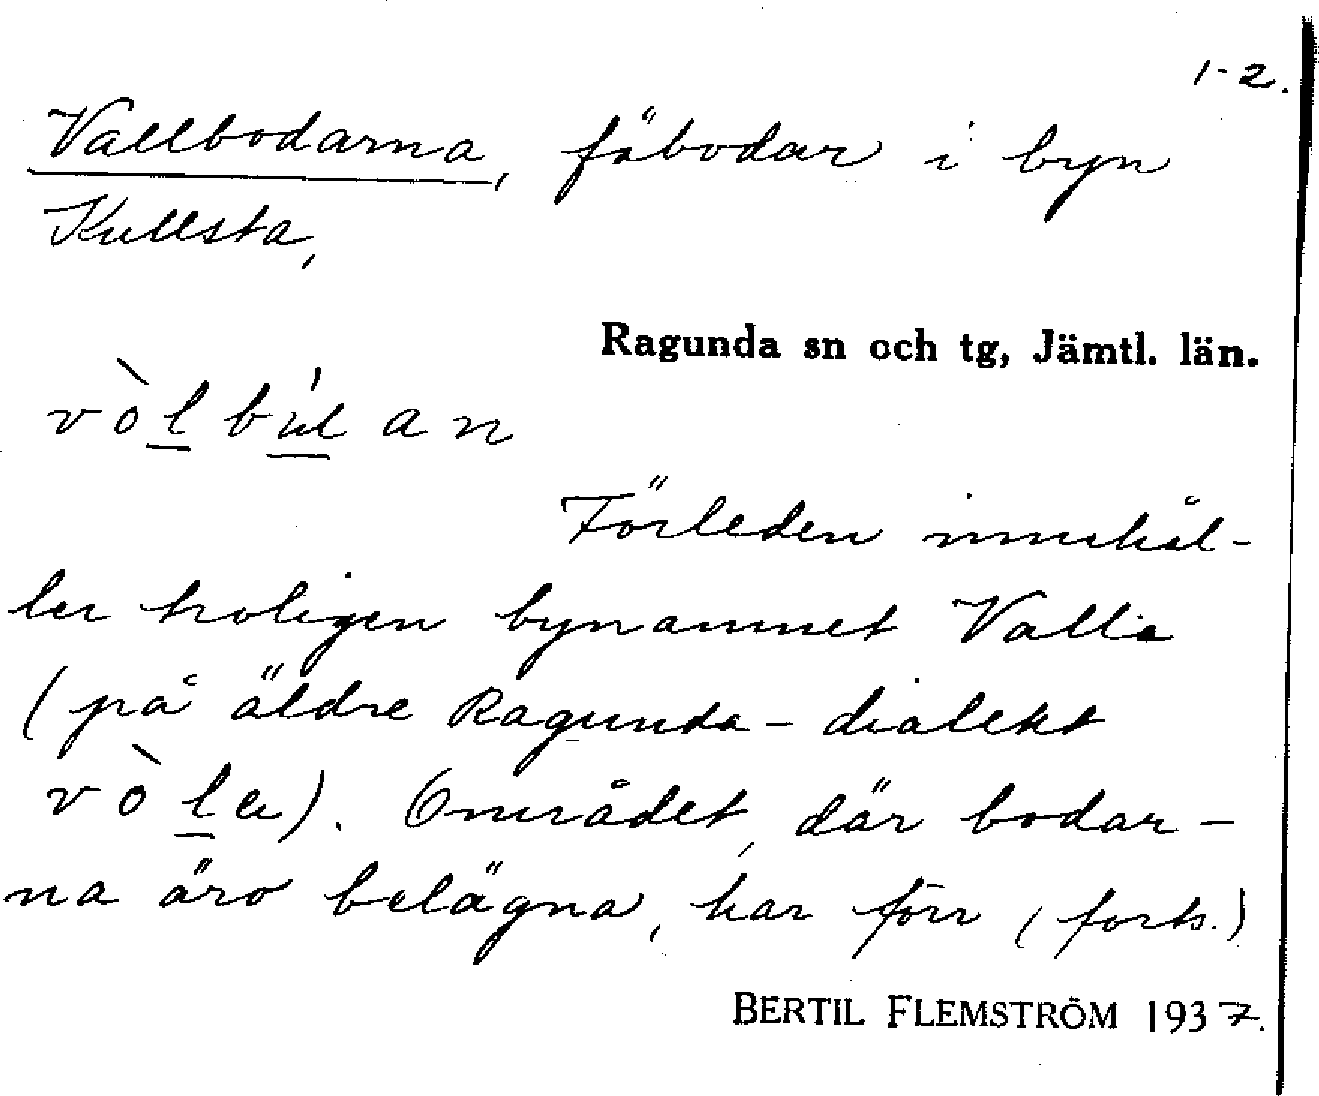 1-2.
Vallbodarna, fäbodar i byn
Kullsta,
Ragunda sn och tg, Jämtl. län.
vòlbu̍lan
Förleden innehål-
ler troligen bynamnet Valla
(på äldre Ragunda-dialekt
vòla). Området, där bodar-
na äro belägna, har förr (forts.)
BERTIL FLEMSTRÖM 1937.